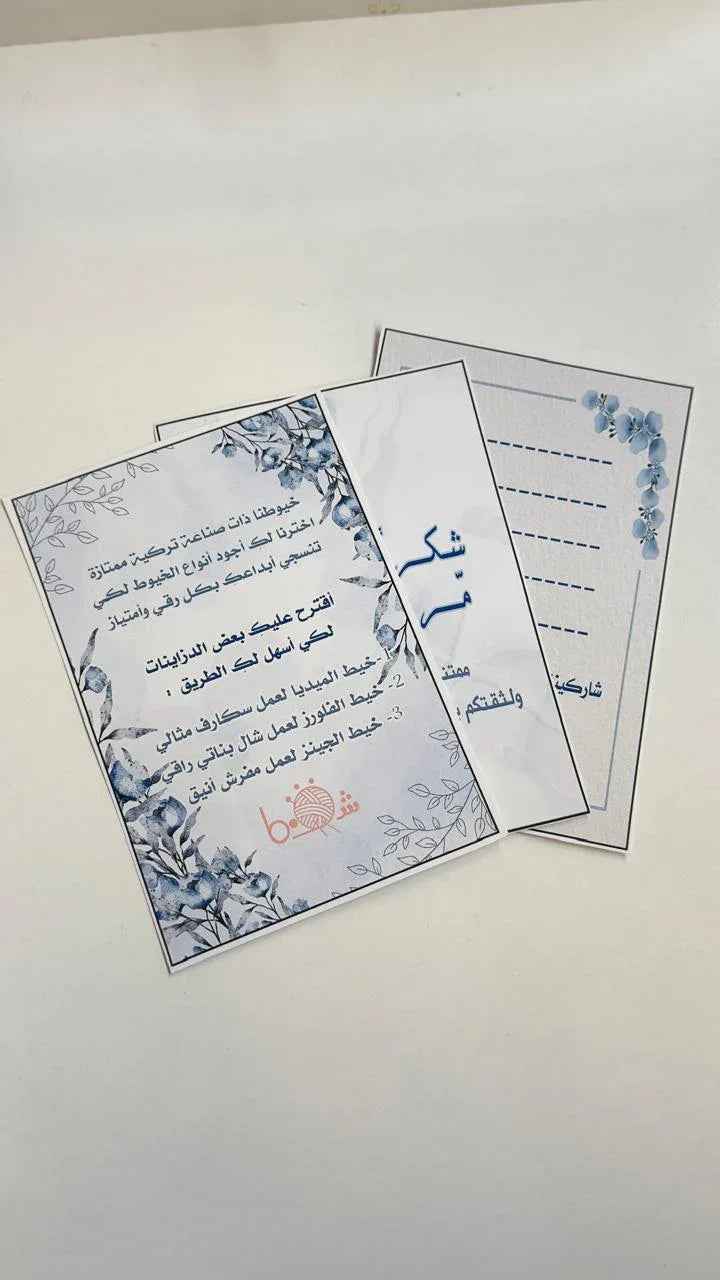 خيوطنا ذات صناعة تركية ممتازة
اخترنا لك أجود أنواع الخيوط لكي
تنسجي أبداعك بكل رقي وأمتياز
أقترح عليك بعض الدزاينات
لكي أسهل لك الطريق :
1- خيط الميديا لعمل سكارف مثالي
2- خيط الفلورز لعمل شال بناتي راقي
3- خيط الجينز لعمل مفرش أنيق
شكر
ولثقتكم